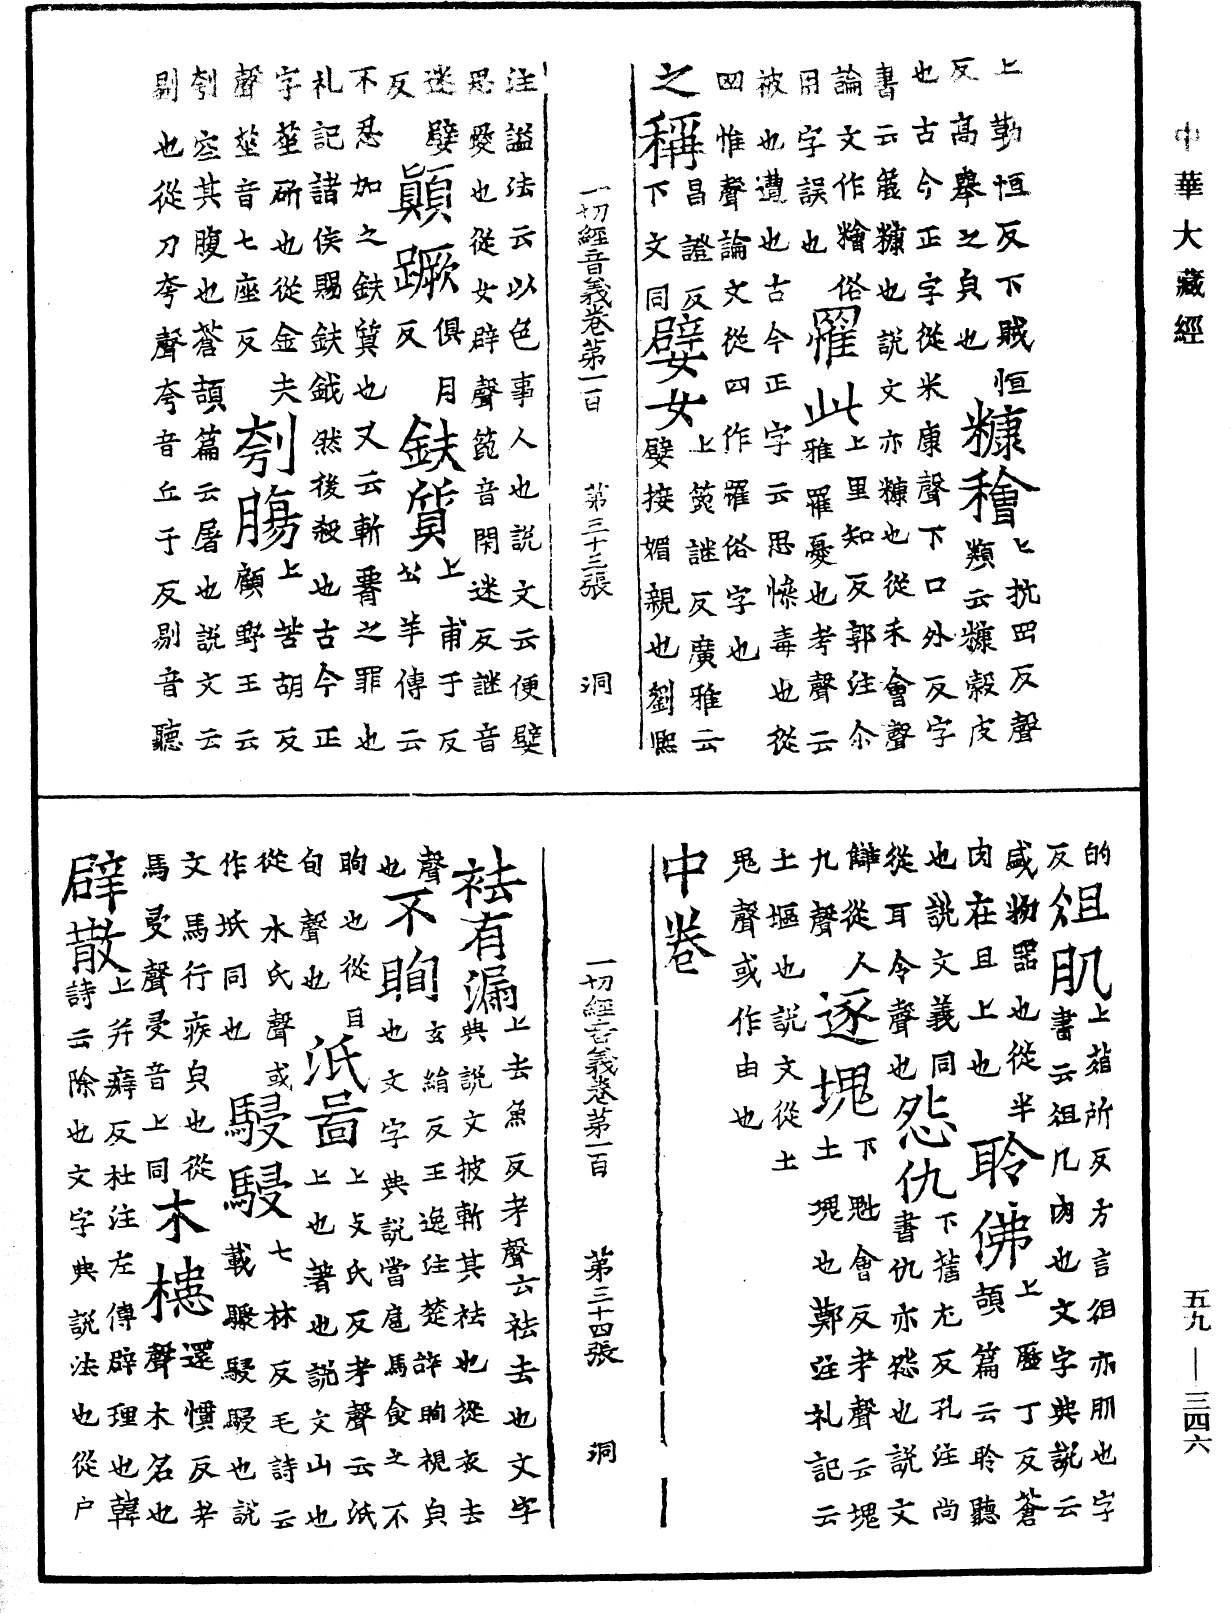 中華大藏經
上勒恒反下賊恒
反高舉之皃也
糠糩上抗罡反聲類云糠穀皮
也古今正字從米康聲下口外反字
書云麄糠也說文亦糠也從禾會聲
論文作糩俗
用字誤也
罹此上里知反郭注尒雅罹憂也考聲云
被也遭也古今正字云思慘毒也從
罒惟聲論文從四作羅俗字也
之稱昌證反下文同
嬖女上箆謎反廣雅云嬖接媚親也劉熙
一切經音義卷第一百 第三十三張 洞
注謚法云以色事人也說文云便嬖
愛也從女辟聲箆音閇迷反謎音
迷嬖反
顛蹶俱月反
鈇質上甫于反公羊傳云
不忍加之鈇質也又云斬罶之罪也
礼記諸侯賜鈇鉞然後殺也古今正
字莝斫也從金夫
聲莝音七座反
刳腸上苦胡反顧野王云
刳空其腹也蒼頡篇云屠也說文云
剔也從刀夸聲夸音丘于反剔音聽
的反
俎肌上葅所反方言俎亦肌也字書云俎几肉也文字典說云
盛物器也從半
肉在且上也
聆佛上歷丁反蒼頡篇云聆聽
也說文義同
從耳令聲也
怨仇下舊尤反孔注尚書仇亦怨也說文
讎從人
九聲
逐塊下魁會反考聲云塊土塊也鄭注礼記云
土堛也說文從土
鬼聲或作由也
中卷
一切經音義卷第一百 第三十四張 洞
袪有漏上去魚反考聲云袪去也文字典說文披斬其袪也從衣去
聲也
不眴玄絹反王逸注楚許眴視皃也文字典說當扈馬食之不
眴也從目
旬聲也
泜啚上攴氏反考聲云泜上也著也說文山也
從水氏聲或
作坻同也
駸駸七林反毛詩云載驟駸駸也說
文馬行疾皃也從
馬㑴聲㑴音上同
木槵還慣反考聲木名也
辟散上并癖反杜注左傳辟理也韓詩云除也文字典說法也從户
五九—三四六